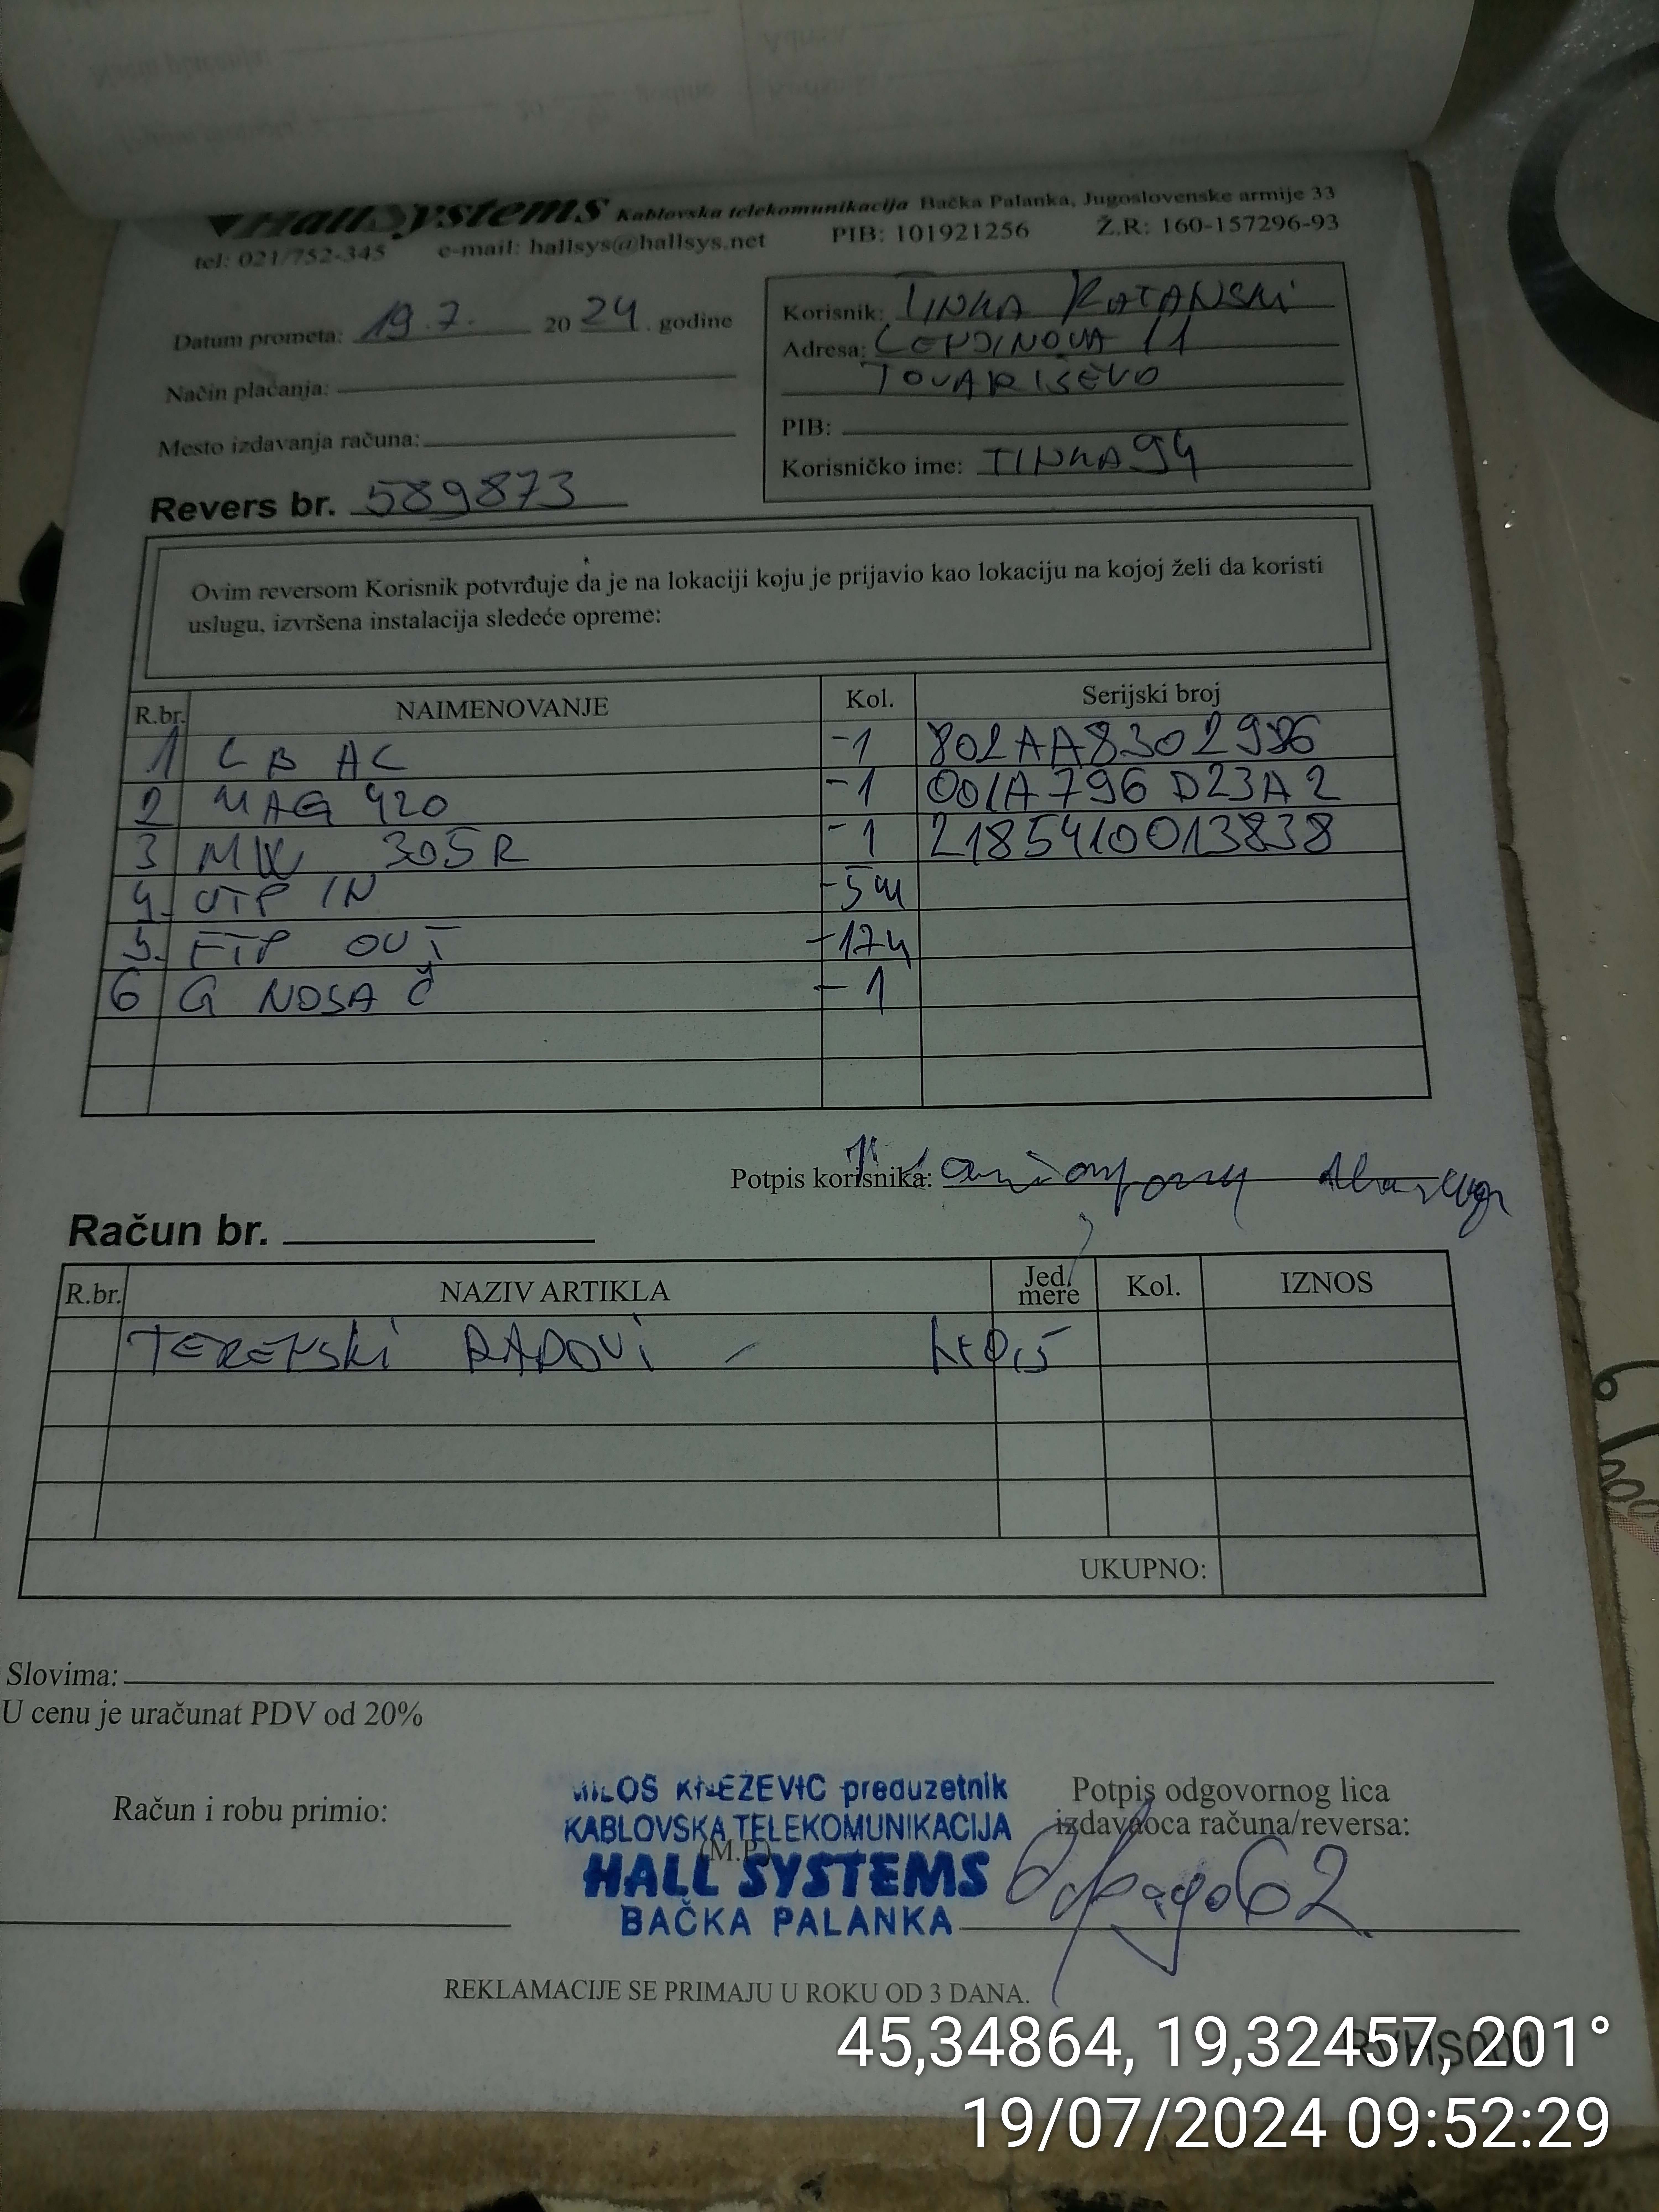 HallSystems Kablovska telekomunikacija Bačka Palanka, Jugoslovenske armije 33
tel: 021/752-345 e-mail: hallsys@hallsys.net PIB: 101921256 Ž.R: 160-157296-93
Datum prometa: 19.7. 20 24. godine
Način plaćanja:
Mesto izdavanja računa:
Revers br. 589873
Korisnik: TINKA
Adresa: 11
TOVARIŠEVO
PIB:
Korisničko ime: TINKA94
Ovim reversom Korisnik potvrđuje da je na lokaciji koju je prijavio kao lokaciju na kojoj želi da koristi
uslugu, izvršena instalacija sledeće opreme:
R.br. NAIMENOVANJE Kol. Serijski broj
1 LB AC -1
2 MAG 420 -1 001A796D23A2
3 MW 305R -1 2185410013838
4. UTP IN -5m
5. FTP OUT -17m
6 G NOSAČ -1
Potpis korisnika:
Račun br.
R.br. NAZIV ARTIKLA Jed. mere Kol. IZNOS
TERENSKI RADOVI -
UKUPNO:
Slovima:
U cenu je uračunat PDV od 20%
Račun i robu primio:
MILOŠ KNEŽEVIĆ preduzetnik
KABLOVSKA TELEKOMUNIKACIJA
(M.P)
HALL SYSTEMS
BAČKA PALANKA
Potpis odgovornog lica
izdavaoca računa/reversa:
REKLAMACIJE SE PRIMAJU U ROKU OD 3 DANA.
45,34864, 19,32457, 201°
19/07/2024 09:52:29